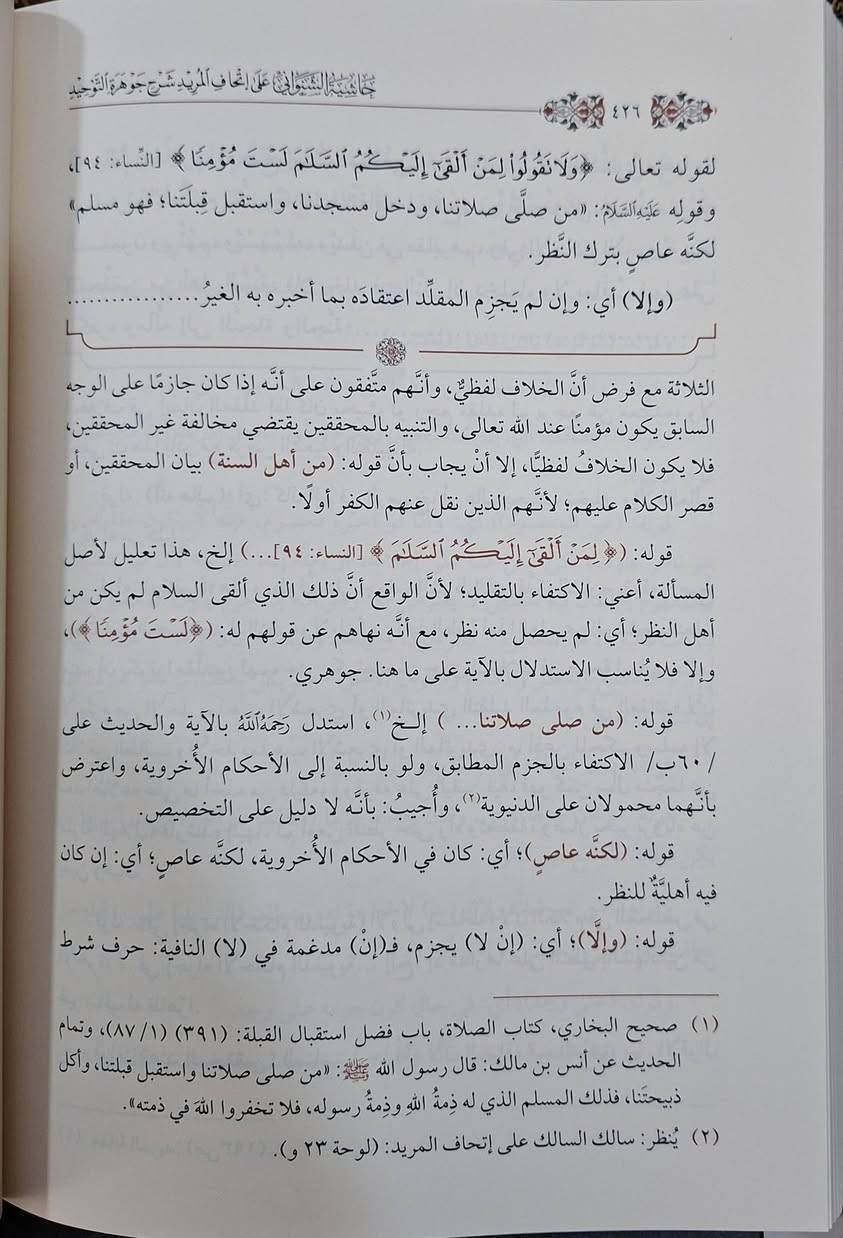 حَاشِيَةُ الشَّنَوَانِيِّ عَلَى إِتْحَافِ المُرِيدِ شَرْحِ جَوْهَرَةِ التَّوْحِيدِ
٤٢٦
لقوله تعالى: ﴿وَلَا تَقُولُوا۟ لِمَنْ أَلْقَىٰٓ إِلَيْكُمُ ٱلسَّلَٰمَ لَسْتَ مُؤْمِنًا﴾ [النِّساء: ٩٤]،
وقولِه عَلَيْهِ السَّلَامُ: «من صلَّى صلاتنا، ودخل مسجدنا، واستقبل قِبلَتَنا؛ فهو مسلم»
لكنَّه عاصٍ بترك النَّظر.
(وإلا) أي: وإن لم يَجزِم المقلِّد اعتقادَه بما أخبره به الغيرُ..................
الثلاثة مع فرض أنَّ الخلاف لفظيٌّ، وأنَّهم متَّفقون على أنَّه إذا كان جازمًا على الوجه
السابق يكون مؤمنًا عند الله تعالى، والتنبيه بالمحققين يقتضي مخالفة غير المحققين،
فلا يكون الخلافُ لفظيًّا، إلا أنْ يجاب بأنَّ قوله: (من أهل السنة) بيان المحققين، أو
قصر الكلام عليهم؛ لأنَّهم الذين نقل عنهم الكفر أولًا.
قوله: (﴿لِمَنْ أَلْقَىٰٓ إِلَيْكُمُ ٱلسَّلَٰمَ﴾ [النساء: ٩٤]...) إلخ، هذا تعليل لأصل
المسألة، أعني: الاكتفاء بالتقليد؛ لأنَّ الواقع أنَّ ذلك الذي ألقى السلام لم يكن من
أهل النظر؛ أي: لم يحصل منه نظر، مع أنَّه نهاهم عن قولهم له: (﴿لَسْتَ مُؤْمِنًا﴾)،
وإلا فلا يُناسب الاستدلال بالآية على ما هنا. جوهري.
قوله: (من صلى صلاتنا... ) إلـخ(١)، استدل رَحِمَهُ اللَّهُ بالآية والحديث على
/٦٠ب/ الاكتفاء بالجزم المطابق، ولو بالنسبة إلى الأحكام الأُخروية، واعترض
بأنَّهما محمولان على الدنيوية(٢)، وأُجيبُ: بأنَّه لا دليل على التخصيص.
قوله: (لكنَّه عاصٍ)؛ أي: كان في الأحكام الأُخروية، لكنَّه عاصٍ؛ أي: إن كان
فيه أهليَّةٌ للنظر.
قوله: (وإلَّا)؛ أي: (إنْ لا) يجزم، فـ(إنْ) مدغمة في (لا) النافية: حرف شرط
(١) صحيح البخاري، كتاب الصلاة، باب فضل استقبال القبلة: (٣٩١) (٨٧/١)، وتمام
الحديث عن أنس بن مالك: قال رسول الله ﷺ: «من صلى صلاتنا واستقبل قبلتنا، وأكل
ذبيحتَنا، فذلك المسلم الذي له ذِمةُ اللهِ وذِمةُ رسوله، فلا تخفروا اللهَ في ذمته».
(٢) يُنظر: سالك السالك على إتحاف المريد: (لوحة ٢٣ و).